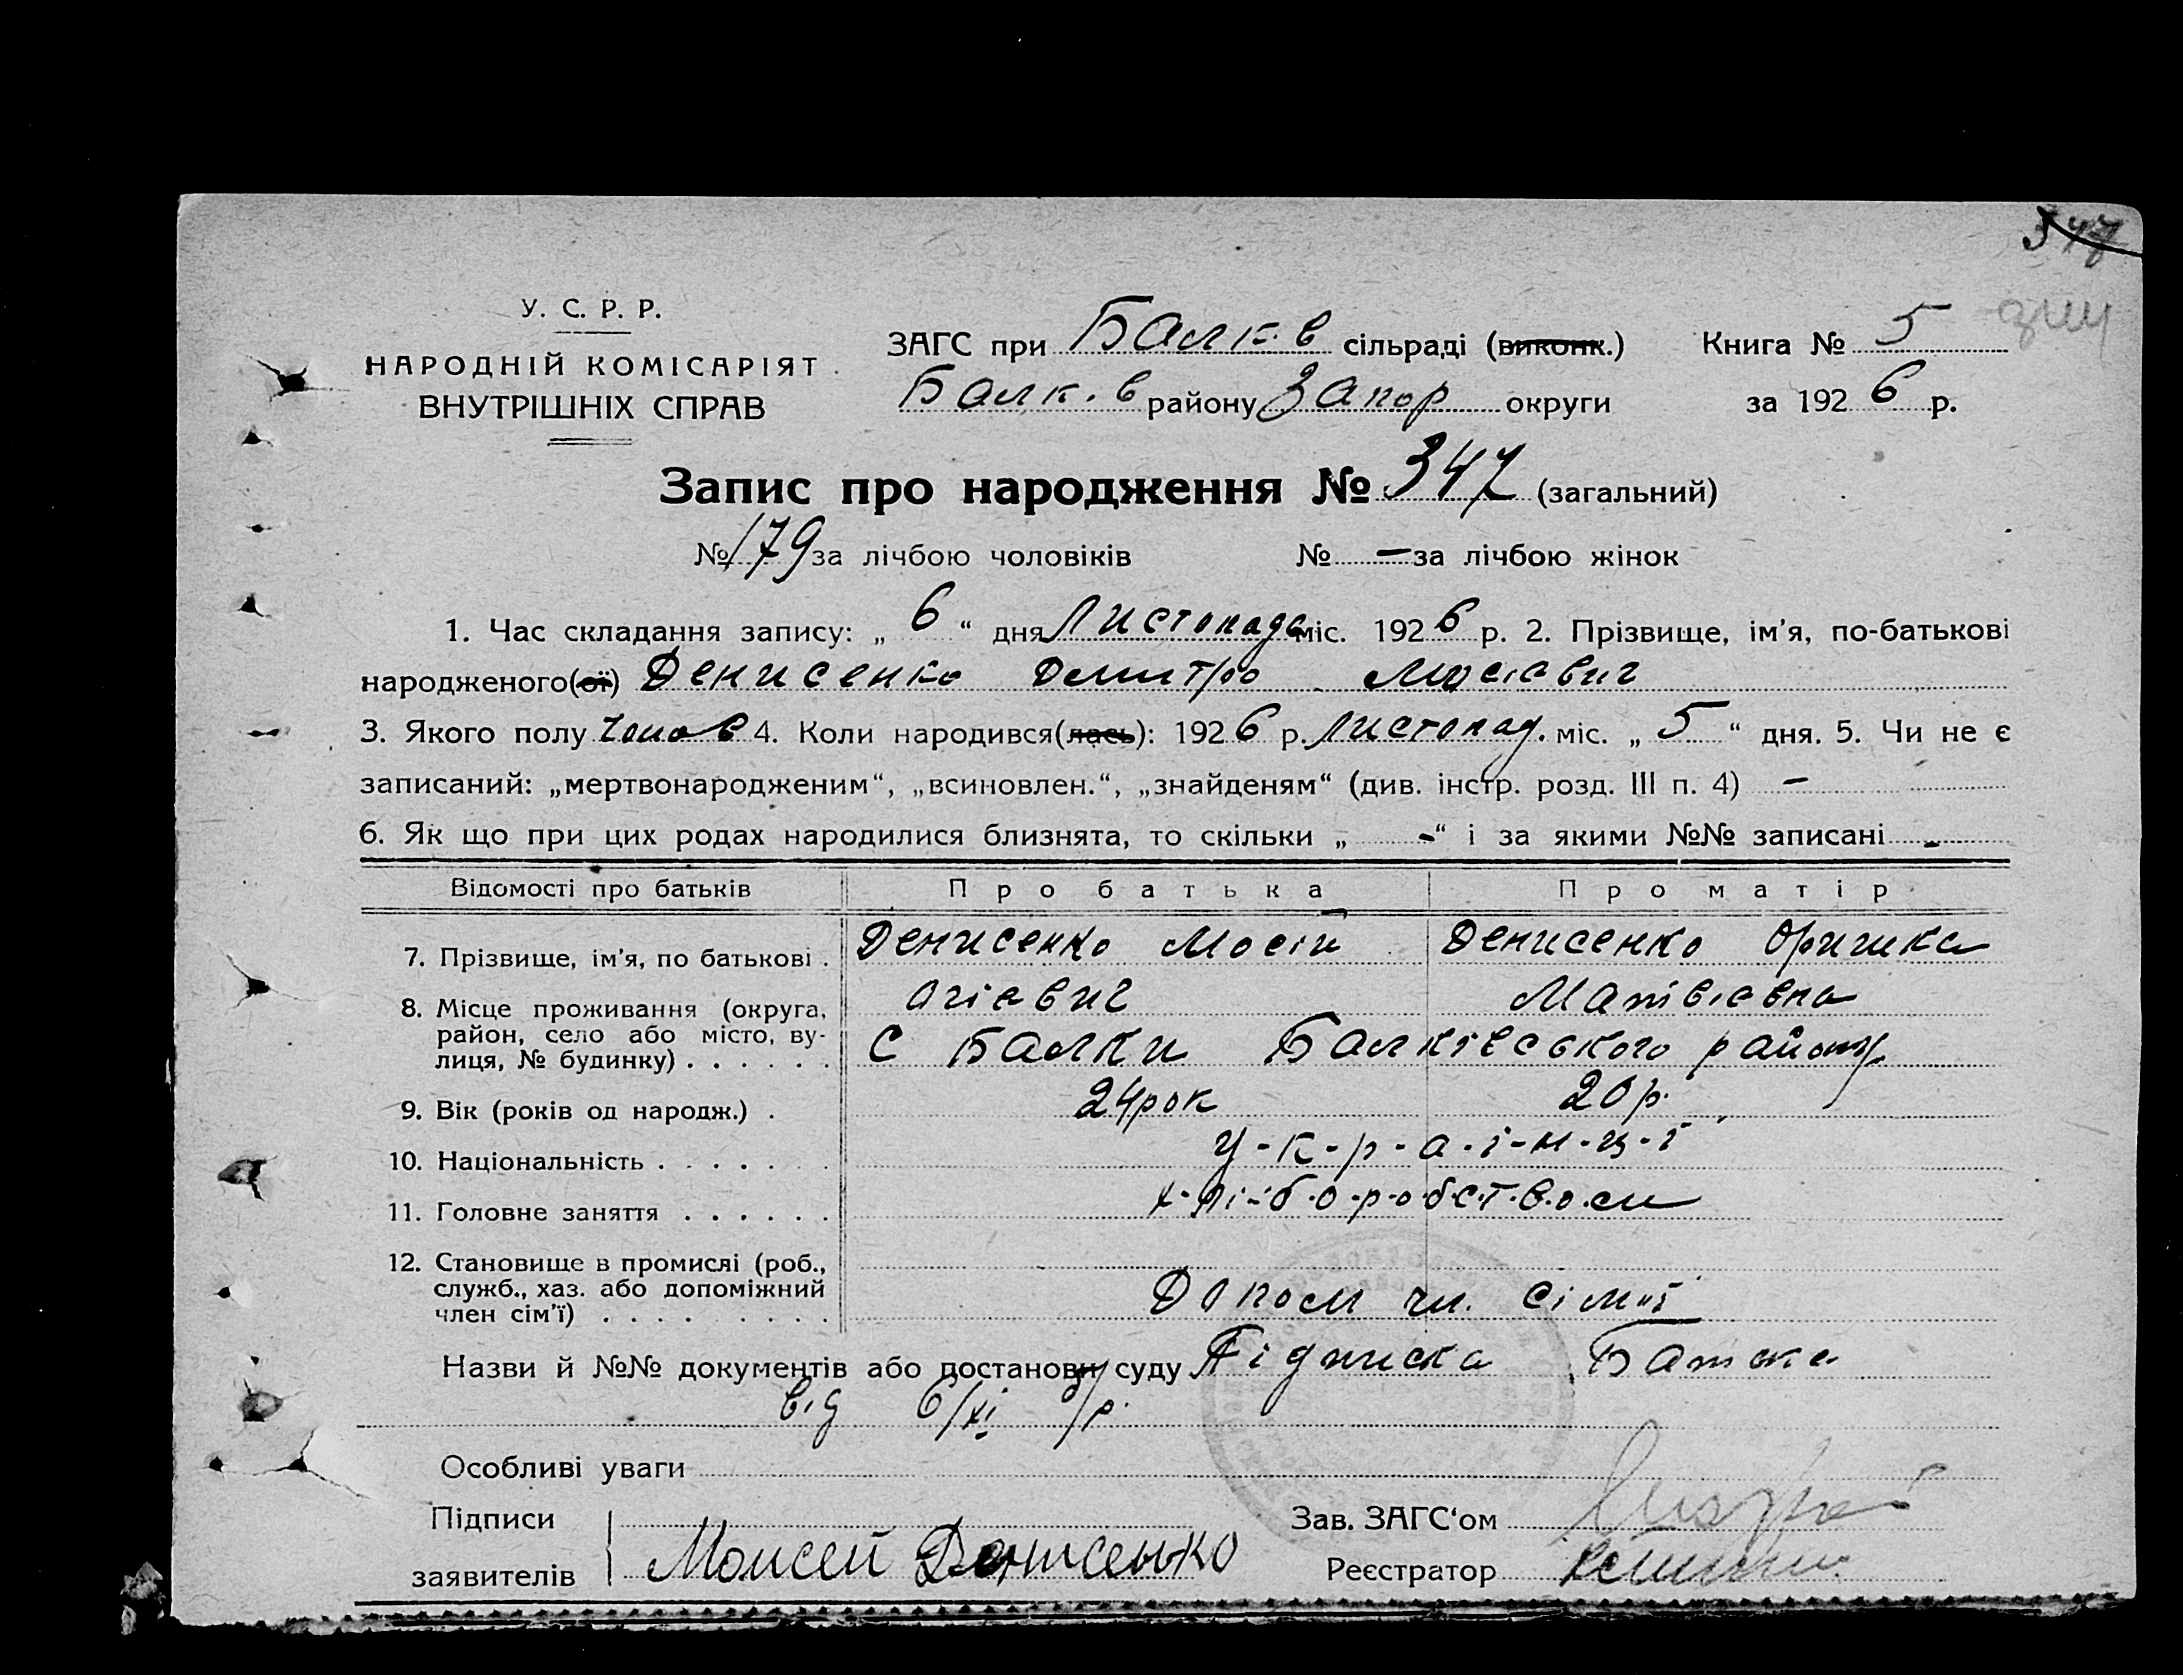 347
У. С. Р. Р.
НАРОДНІЙ КОМІСАРІЯТ
ВНУТРІШНІХ СПРАВ
ЗАГС при Балк. в сільраді (виконк.) Книга № 5
Балк. в району Запор округи за 1926 р.
Запис про народження № 347 (загальний)
№ 179 за лічбою чоловіків № — за лічбою жінок
1. Час складання запису: „ 6 “ дня Листопада міс. 1926 р. 2. Прізвище, ім'я, по-батькові
народженого(ої) Денисенко Дмитро Мосієвич
3. Якого полу чолов 4. Коли народився(лась): 1926 р. листопад. міс. „ 5 “ дня. 5. Чи не є
записаний: „мертвонародженим“, „всиновлен.“, „знайденям“ (див. інстр. розд. III п. 4) —
6. Як що при цих родах народилися близнята, то скільки „ - “ і за якими №№ записані -
Відомості про батьків Про батька Про матір
7. Прізвище, ім'я, по батькові . Денисенко Мосій Денисенко Оришка
Матвієвна
8. Місце проживання (округа,
район, село або місто, ву-
лиця, № будинку) . . . . . . с Балки Балківського району
9. Вік (років од народж.) . 24 рок 20 р.
10. Національність . . . . . . . у-к-р-а-ї-н-ц-і
11. Головне заняття . . . . . . х-лі-б-о-р-о-б-с-т-в-о-м
12. Становище в промислі (роб.,
служб., хаз. або допоміжний
член сім'ї) . . . . . . . . . Допом чл. сімʼї
Назви й №№ документів або постанови суду Підписка Батька
від 6/XI ц/р.
Особливі уваги
Підписи Зав. ЗАГС'ом
заявителів Моисей Денисенко Реєстратор